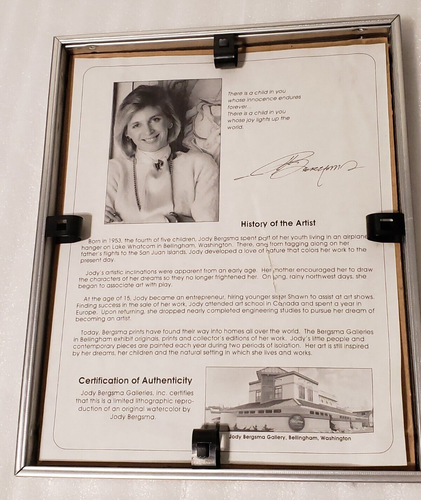 There is a child in you
whose innocence endures
forever...
There is a child in you
whose joy lights up the
world.
History of the Artist
Born in 1953, the fourth of five children, Jody Bergsma spent part of her youth living in an airplane
hanger on Lake Whatcom in Bellingham, Washington. There, and from tagging along on her
father's flights to the San Juan Islands, Jody developed a love of nature that colors her work to the
present day.
Jody's artistic inclinations were apparent from an early age. Her mother encouraged her to draw
the characters of her dreams so they no longer frightened her. On long, rainy northwest days, she
began to associate art with play.
At the age of 15, Jody became an entrepreneur, hiring younger sister Shawn to assist at art shows.
Finding success in the sale of her work, Jody attended art school in Canada and spent a year in
Europe. Upon returning, she dropped nearly completed engineering studies to pursue her dream of
becoming an artist.
Today, Bergsma prints have found their way into homes all over the world. The Bergsma Galleries
in Bellingham exhibit originals, prints and collector's editions of her work. Jody's little people and
contemporary pieces are painted each year during two periods of isolation. Her art is still inspired
by her dreams, her children and the natural setting in which she lives and works.
Certification of Authenticity
Jody Bergsma Galleries, Inc. certifies
that this is a limited lithographic repro-
duction of an original watercolor by
Jody Bergsma.
Jody Bergsma Gallery, Bellingham, Washington